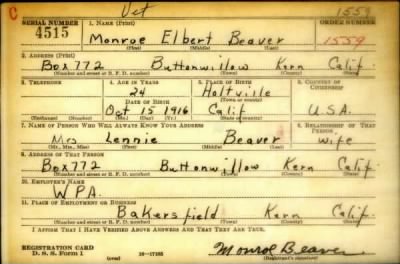 C Vet 1559
SERIAL NUMBER 1. NAME (Print) ORDER NUMBER
4515 Monroe Elbert Beaver 1559
(First) (Middle) (Last)
2. ADDRESS (Print)
Box 772 Buttonwillow Kern Calif.
(Number and street or R. F. D. number) (Town) (County) (State)
3. TELEPHONE 4. AGE IN YEARS 5. PLACE OF BIRTH 6. COUNTRY OF CITIZENSHIP
24 Holtville
DATE OF BIRTH (Town or county)
Oct 15 1916 Calif U.S.A.
(Exchange) (Number) (Mo.) (Day) (Yr.) (State or country)
7. NAME OF PERSON WHO WILL ALWAYS KNOW YOUR ADDRESS 8. RELATIONSHIP OF THAT PERSON
Mrs Lennie Beaver wife
(Mr., Mrs., Miss) (First) (Middle) (Last)
9. ADDRESS OF THAT PERSON
Box 772 Buttonwillow Kern Calif.
(Number and street or R. F. D. number) (Town) (County) (State)
10. EMPLOYER'S NAME
W.P.A.
11. PLACE OF EMPLOYMENT OR BUSINESS
Bakersfield Kern Calif.
(Number and street or R. F. D. number) (Town) (County) (State)
I AFFIRM THAT I HAVE VERIFIED ABOVE ANSWERS AND THAT THEY ARE TRUE.
REGISTRATION CARD
D. S. S. Form 1 (over) 16-17105 Monroe Beaver
(Registrant's signature)